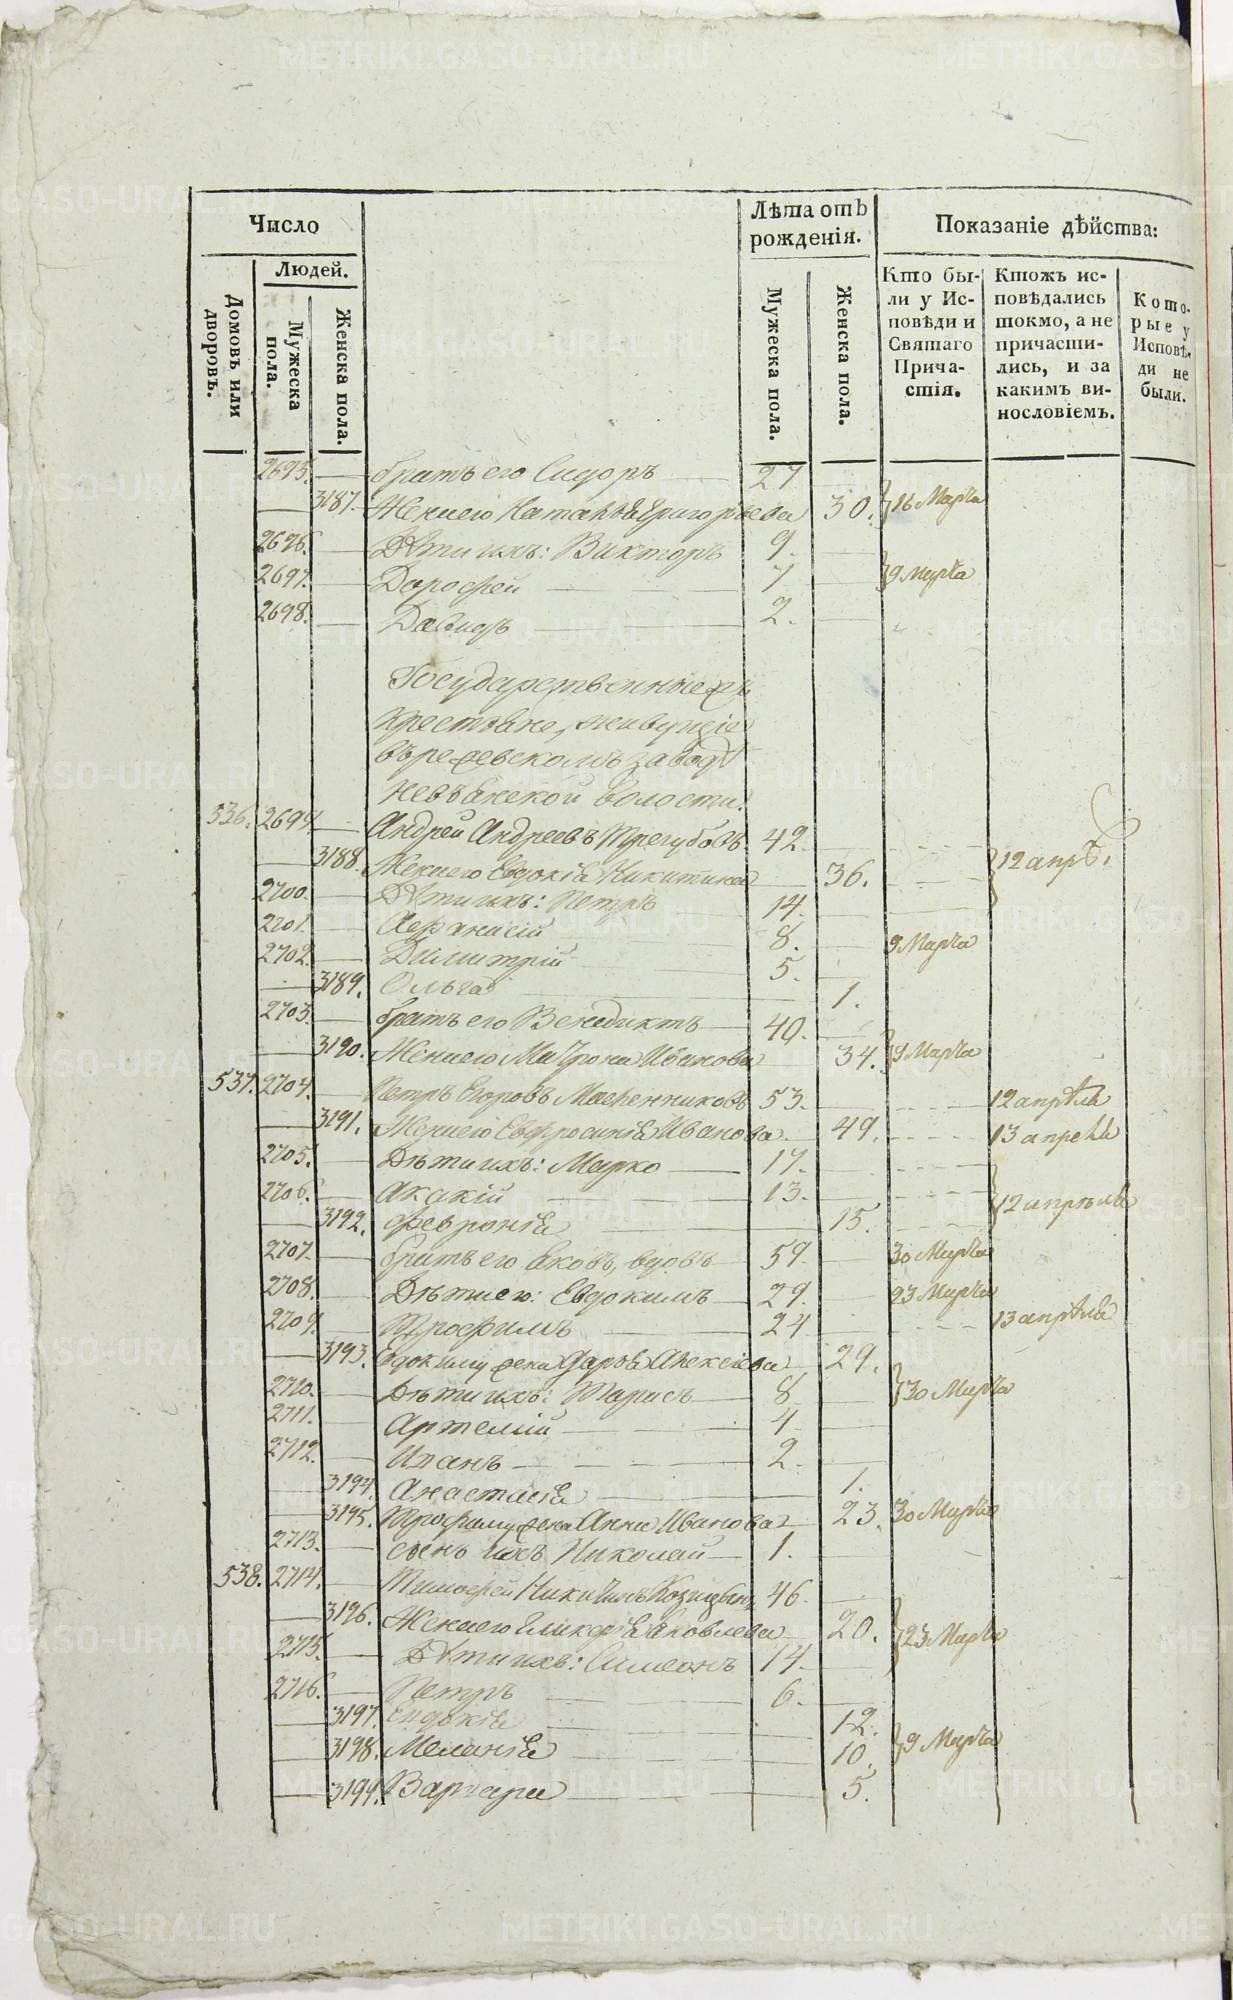 Число
Лѣта отъ рожденія.
Показаніе дѣйства:
Домовъ или дворовъ.
Людей.
Мужеска пола.
Женска пола.
Мужеска пола.
Женска пола.
Кто бы-
ли у Ис-
повѣди и
Святаго
Прича-
стія.
Ктожъ ис-
повѣдались
токмо, а не
причасти-
лись, и за
какимъ ви-
нословіемъ.
Кото-
рые у
Исповѣ-
ди не
были.
2695. братъ его Сидоръ 27
3187. Жена его Наталья Григорьева 30. 16 Марта
2696. Дѣти ихъ: Викторъ 9.
2697. Дорофей 7 9 Марта
2698. Давидъ 2.
Государственные
крестьяне, живущіе
въ режевскомъ заводѣ
Невьянской волости.
536. 2699. Андрей Андреевъ Трегубовъ 42.
3188. Жена его Евдокія Никитина 36. 12 апрѣ.
2700. Дѣти ихъ: Петръ 14.
2701. Афанасій 8. 9 Марта
2702. Димитрій 5.
3189. Ольга 1.
2703. братъ его Венедиктъ 40.
3190. Жена его Матрона Иванова 34. 9 Марта
537. 2704. Петръ Егоровъ Масленниковъ 53. 12 апрѣля
3191. Жена его Евфросинія Иванова 49. 13 апреля
2705. Дѣти ихъ: Марко 17.
2706. Акакій 13. 12 апрѣля
3192. Февронія 15.
2707. братъ его Яковъ, вдовъ 59. 30 Марта
2708. Дѣти его: Евдокимъ 29. 23 Марта
2709. Трофимъ 24 13 апрѣля
3193. Евдокима жена Дарья Алексіева 29.
2710. Дѣти ихъ: Тарасъ 8 30 Марта
2711. Артемій 4
2712. Иванъ 2.
3194. Анастасія 1.
3195. Трофима жена Анна Иванова 23. 30 Марта
2713. сынъ ихъ Николай 1.
538. 2714. Тимофей Никитинъ Козицынъ 46.
3196. Жена его Гликерія Яковлева 20. 23 Марта
2715. Дѣти ихъ: Симеонъ 14.
2716. Петръ 6.
3197. Евдокія 12.
3198. Меланія 10. 9 Марта
3199. Варвара 5.
METRIKI.GASO-URAL.RU